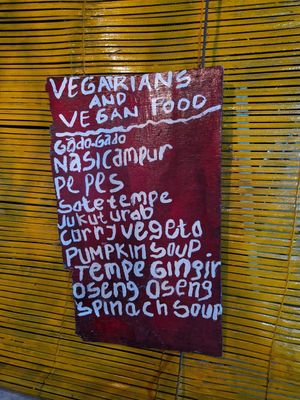 VEGATRIANS
AND
VEGAN FOOD
Gado-Gado
NASI CAMPUR
PEPES
Sate tempe
JUKUT URAB
CORRJ VEGETO
PUMPKIN SOUP
TEMPE GINGIR
OSENG OSENG
SPINACH SOUP